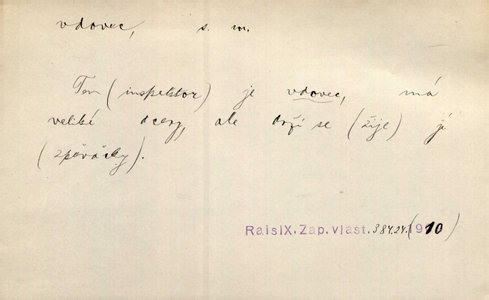 vdovec, s. m.
Ten (inspektor) je vdovec, má
velké dcery, ale drží se (žije) jí
(zpěvačky).
RaisIX.Zap.vlast.384.24.(1910)